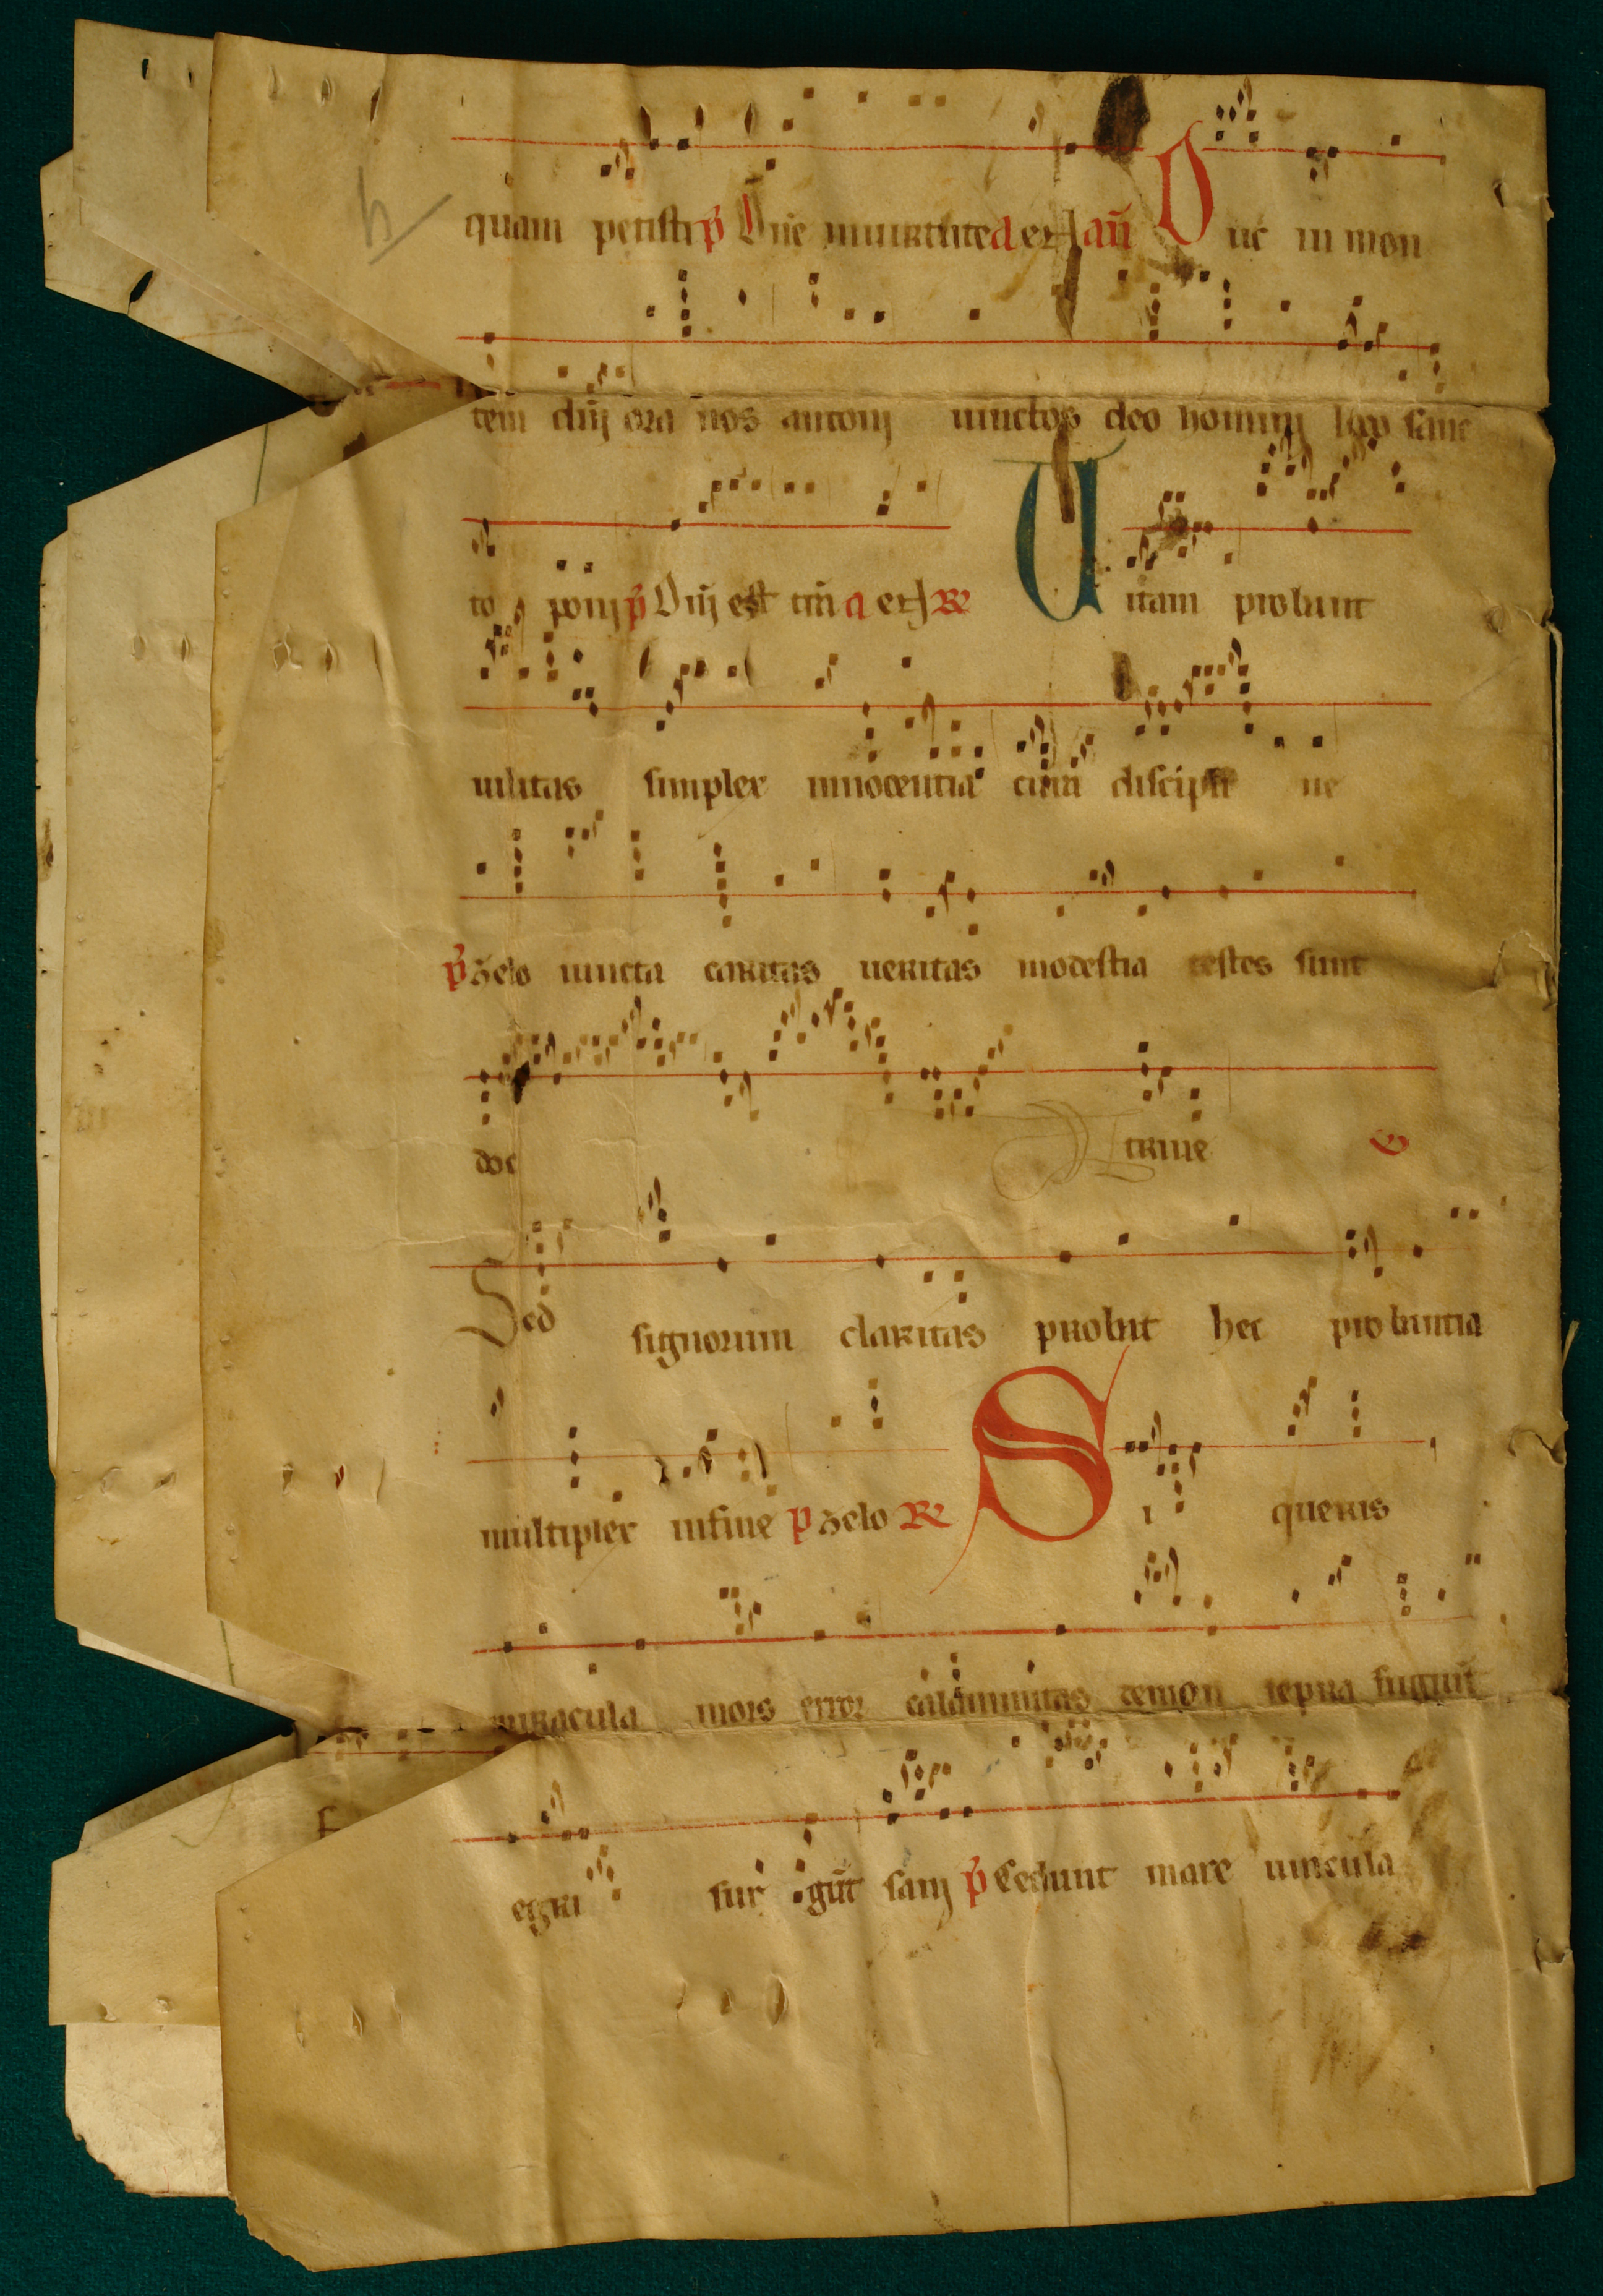 quam petisti p̄ Dñe in uirtute a et aň Duc in mon
tem dñi ora nos antonij iunctos deo homini loco sanc
to poni p̄ Dñi est tr̃a a et R Uitam probant
uilitas simplex innocentia cura discipli ne
p̄ zelo iuncta caritas ueritas modestia testes sunt
doc trine v
Sed signorum claritas probat hec probantia
multiplex in fine p zelo R Si queris
miracula mors error calammitas demon lepra fugiūt
egri sur gūt sani p̄ Cedunt mare uincula